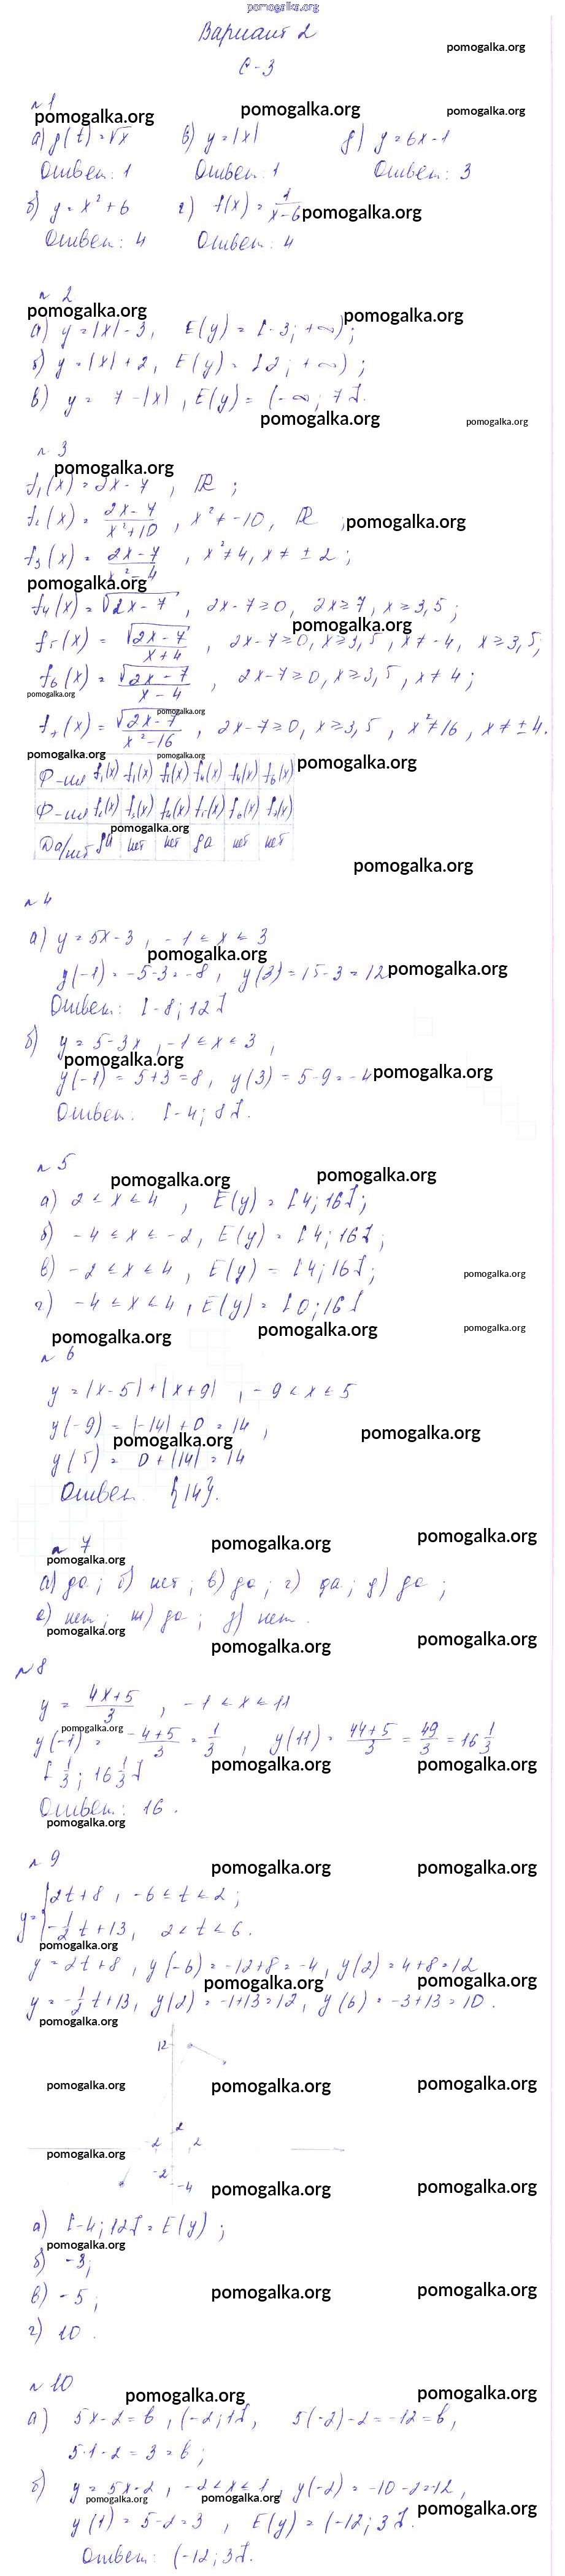 pomogalka.org
Вариант 2
pomogalka.org
С-3
№1
pomogalka.org pomogalka.org pomogalka.org
а) g(t)=√x в) y=|x| д) y=6x-1
Ответ: 1 Ответ: 1 Ответ: 3
б) y=x²+6 г) f(x)=1/(x-6) pomogalka.org
Ответ: 4 Ответ: 4
№2
pomogalka.org pomogalka.org
а) y=|x|-3, E(y)=[-3;+∞);
б) y=|x|+2, E(y)=[2;+∞);
в) y=7-|x|, E(y)=(-∞;7].
pomogalka.org pomogalka.org
№3
pomogalka.org
f₁(x)=2x-7, ℝ;
f₂(x)=(2x-7)/(x²+10), x²≠-10, ℝ; pomogalka.org
f₃(x)=(2x-7)/(x²-4), x²≠4, x≠±2;
pomogalka.org
f₄(x)=√(2x-7), 2x-7≥0, 2x≥7, x≥3,5;
pomogalka.org
f₅(x)=√(2x-7)/(x+4), 2x-7≥0, x≥3,5, x≠-4, x≥3,5;
f₆(x)=√(2x-7)/(x-4), 2x-7≥0, x≥3,5, x≠4;
pomogalka.org
pomogalka.org
f₇(x)=√(2x-7)/(x²-16), 2x-7≥0, x≥3,5, x²≠16, x≠±4.
pomogalka.org pomogalka.org pomogalka.org
Ф-ия f₁(x) f₁(x) f₄(x) f₄(x) f₆(x)
Ф-ия f₂(x) f₃(x) f₄(x) f₅(x) f₆(x) f₇(x)
pomogalka.org
Да/нет да нет нет да нет нет
pomogalka.org
№4
а) y=5x-3, -1≤x≤3
pomogalka.org
y(-1)=-5-3=-8, y(3)=15-3=12 pomogalka.org
Ответ: [-8;12]
б) y=5-3x, -1≤x≤3,
pomogalka.org
y(-1)=5+3=8, y(3)=5-9=-4 pomogalka.org
Ответ: [-4;8].
№5
pomogalka.org pomogalka.org
а) 2≤x≤4, E(y)=[4;16];
б) -4≤x≤-2, E(y)=[4;16];
в) -2≤x≤4, E(y)=[4;16];
pomogalka.org
г) -4≤x≤4, E(y)=[0;16]
pomogalka.org pomogalka.org pomogalka.org
№6
y=|x-5|+|x+9|, -9≤x≤5
y(-9)=|-14|+0=14,
pomogalka.org pomogalka.org
y(5)=0+|14|=14
Ответ {14}.
№7
pomogalka.org pomogalka.org pomogalka.org
а) да; б) нет; в) да; г) да; д) да;
е) нет; ж) да; з) нет.
pomogalka.org pomogalka.org pomogalka.org
№8
y=(4x+5)/3, -1≤x≤11
pomogalka.org
y(-1)=(-4+5)/3=1/3, y(11)=(44+5)/3=49/3=16 1/3
[1/3; 16 1/3] pomogalka.org pomogalka.org
Ответ: 16.
pomogalka.org
№9
pomogalka.org pomogalka.org
y={2t+8, -6≤t≤2;
-1/2 t+13, 2<t≤6.
pomogalka.org
y=2t+8, y(-6)=-12+8=-4, y(2)=4+8=12
pomogalka.org pomogalka.org
y=-1/2 t+13, y(2)=-1+13=12, y(6)=-3+13=10.
pomogalka.org
12
pomogalka.org pomogalka.org pomogalka.org
2
-2 2
pomogalka.org
-2
-4
pomogalka.org pomogalka.org
а) [-4;12]=E(y);
pomogalka.org
б) -3;
в) -5; pomogalka.org pomogalka.org
г) 10.
№10
pomogalka.org pomogalka.org
а) 5x-2=b, (-2;1], 5(-2)-2=-12=b,
5·1-2=3=b;
б) y=5x-2, -2<x≤1, y(-2)=-10-2=-12,
pomogalka.org pomogalka.org pomogalka.org
y(1)=5-2=3, E(y)=(-12;3].
Ответ: (-12;3].